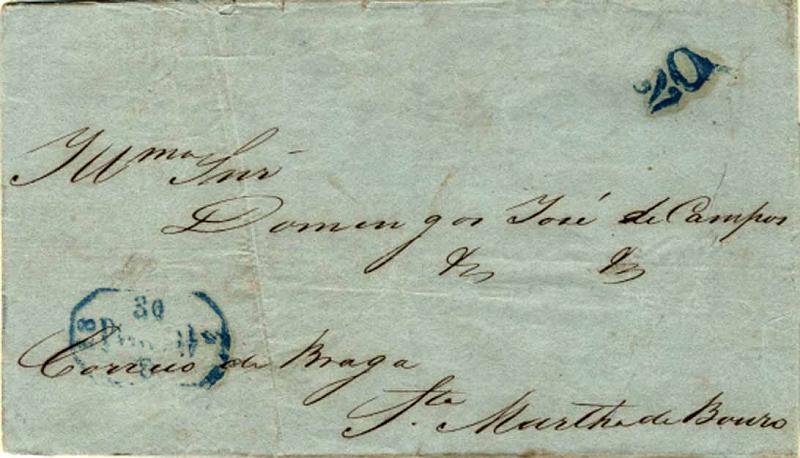 20
Illmo Snr
Domingos José de Campos
30
8
Correio de Braga
Sta Martha de Bouro